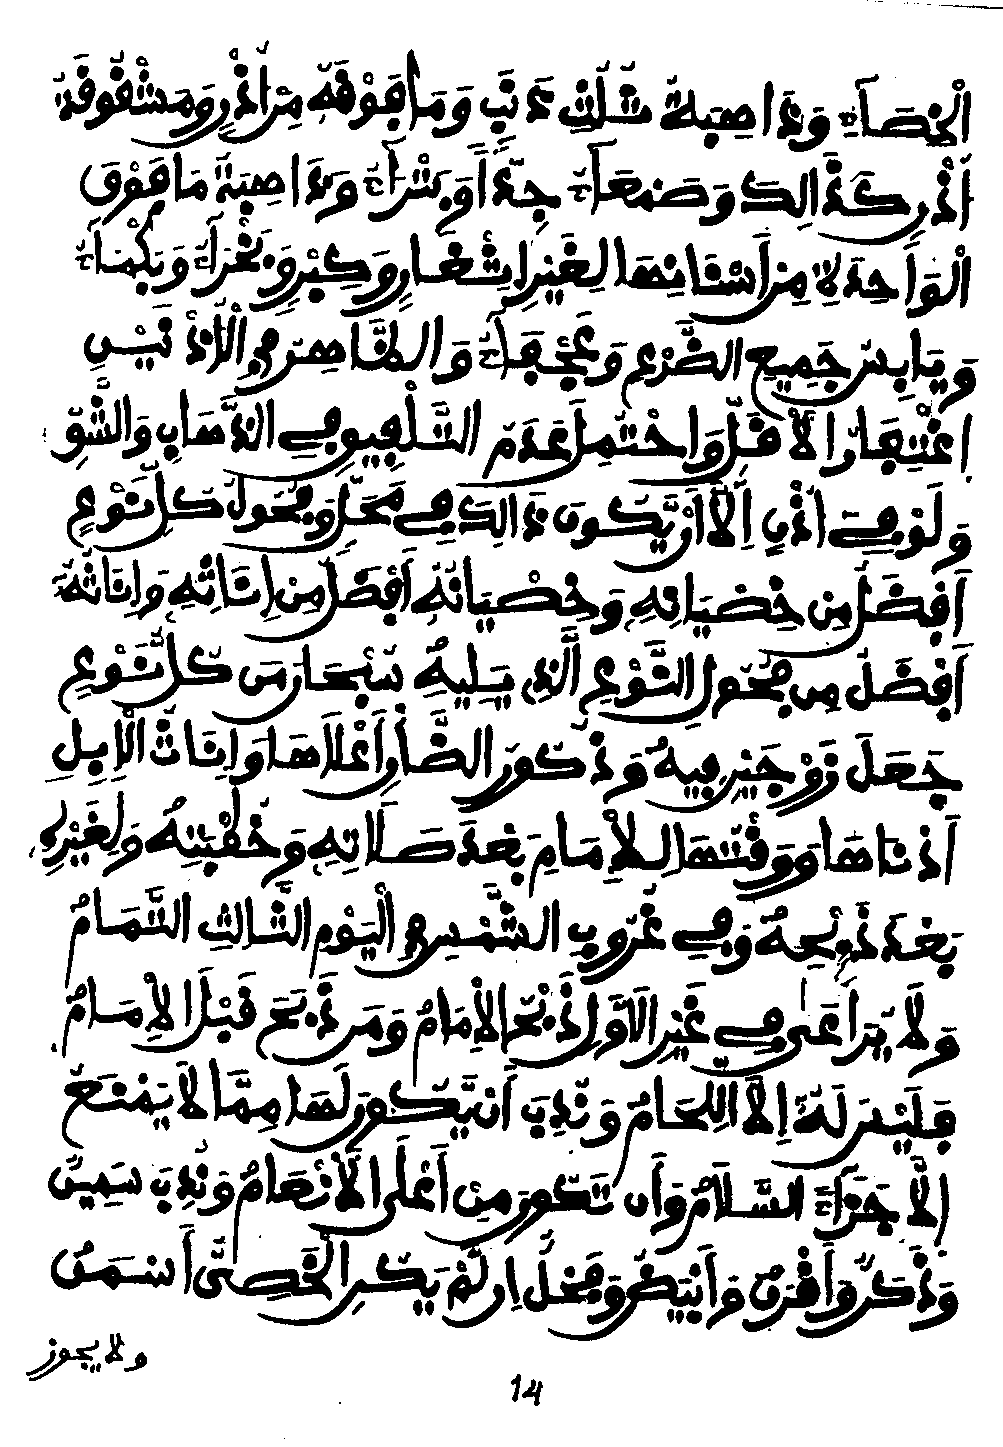 الْخَصَاءِ وَذَاهِبَةُ ثُلُثِ ذَنَبٍ وَمَا فَوْقَهُ مِنْ أُذُنٍ وَمَشْقُوقَةُ
أُذُنٍ كَذَالِكَ وَصَمْعَاءُ جِدًّا وَبَتْرَاءُ وَذَاهِبَةُ مَا فَوْقَ
الْوَاحِدَةِ لَا مِنْ أَسْنَانِهَا لِغَيْرِ إِثْغَارٍ وَكِبْرٍ وَبَخْرَاءُ وَبَكْمَاءُ
وَيَابِسُ جَمِيعِ الضَّرْعِ وَعَجْفَاءُ وَالظَّاهِرُ فِي الْأُذُنَيْنِ
اغْتِفَارُ الْأَقَلِّ وَاحْتُمِلَ عَدَمُ التَّلْفِيقِ فِي الذَّهَابِ وَالشَّقِّ
وَلَوْ فِي أُذُنٍ إِلَّا أَنْ يَكُونَ ذَالِكَ فِي مَحَلٍّ وَفُحُولُ كُلِّ نَوْعٍ
أَفْضَلُ مِنْ خِصْيَانِهِ وَخِصْيَانُهُ أَفْضَلُ مِنْ إِنَاثِهِ وَإِنَاثُهُ
أَفْضَلُ مِنْ فُحُولِ النَّوْعِ الَّذِي يَلِيهِ سُبْحَانَ مَنْ كُلَّ نَوْعٍ
جَعَلَ زَوْجَيْنِ فِيهِ وَذُكُورُ الضَّأْنِ أَعْلَاهَا وَإِنَاثُ الْإِبِلِ
أَدْنَاهَا وَوَقْتُهَا لِلْإِمَامِ بَعْدَ صَلَاتِهِ وَخُطْبَتِهِ وَلِغَيْرِهِ
بَعْدَ ذَبْحِهِ وَفِي غُرُوبِ الشَّمْسِ فِي الْيَوْمِ الثَّالِثِ التَّمَامُ
وَلَا يُرَاعَى فِي غَيْرِ الْأَوَّلِ ذَبْحُ الْإِمَامِ وَمَنْ ذَبَحَ قَبْلَ الْإِمَامِ
فَلَيْسَ لَهُ إِلَّا اللِّحَامُ وَنُدِبَ أَنْ يَكُونَ لَهَا مِمَّا لَا يَمْنَعُ
إِلَّا جَزَاءَ السَّلَامُ وَأَن تَكُونَ مِنْ أَعْلَى الْأَنْعَامِ وَنُدِبَ سَمِينٌ
وَذَكَرٌ وَأَقْرَنُ وَأَبْيَضُ وَفَحْلٌ إِن لَمْ يَكُنِ الْخَصِيُّ أَسْمَنَ
ولا يجوز
14